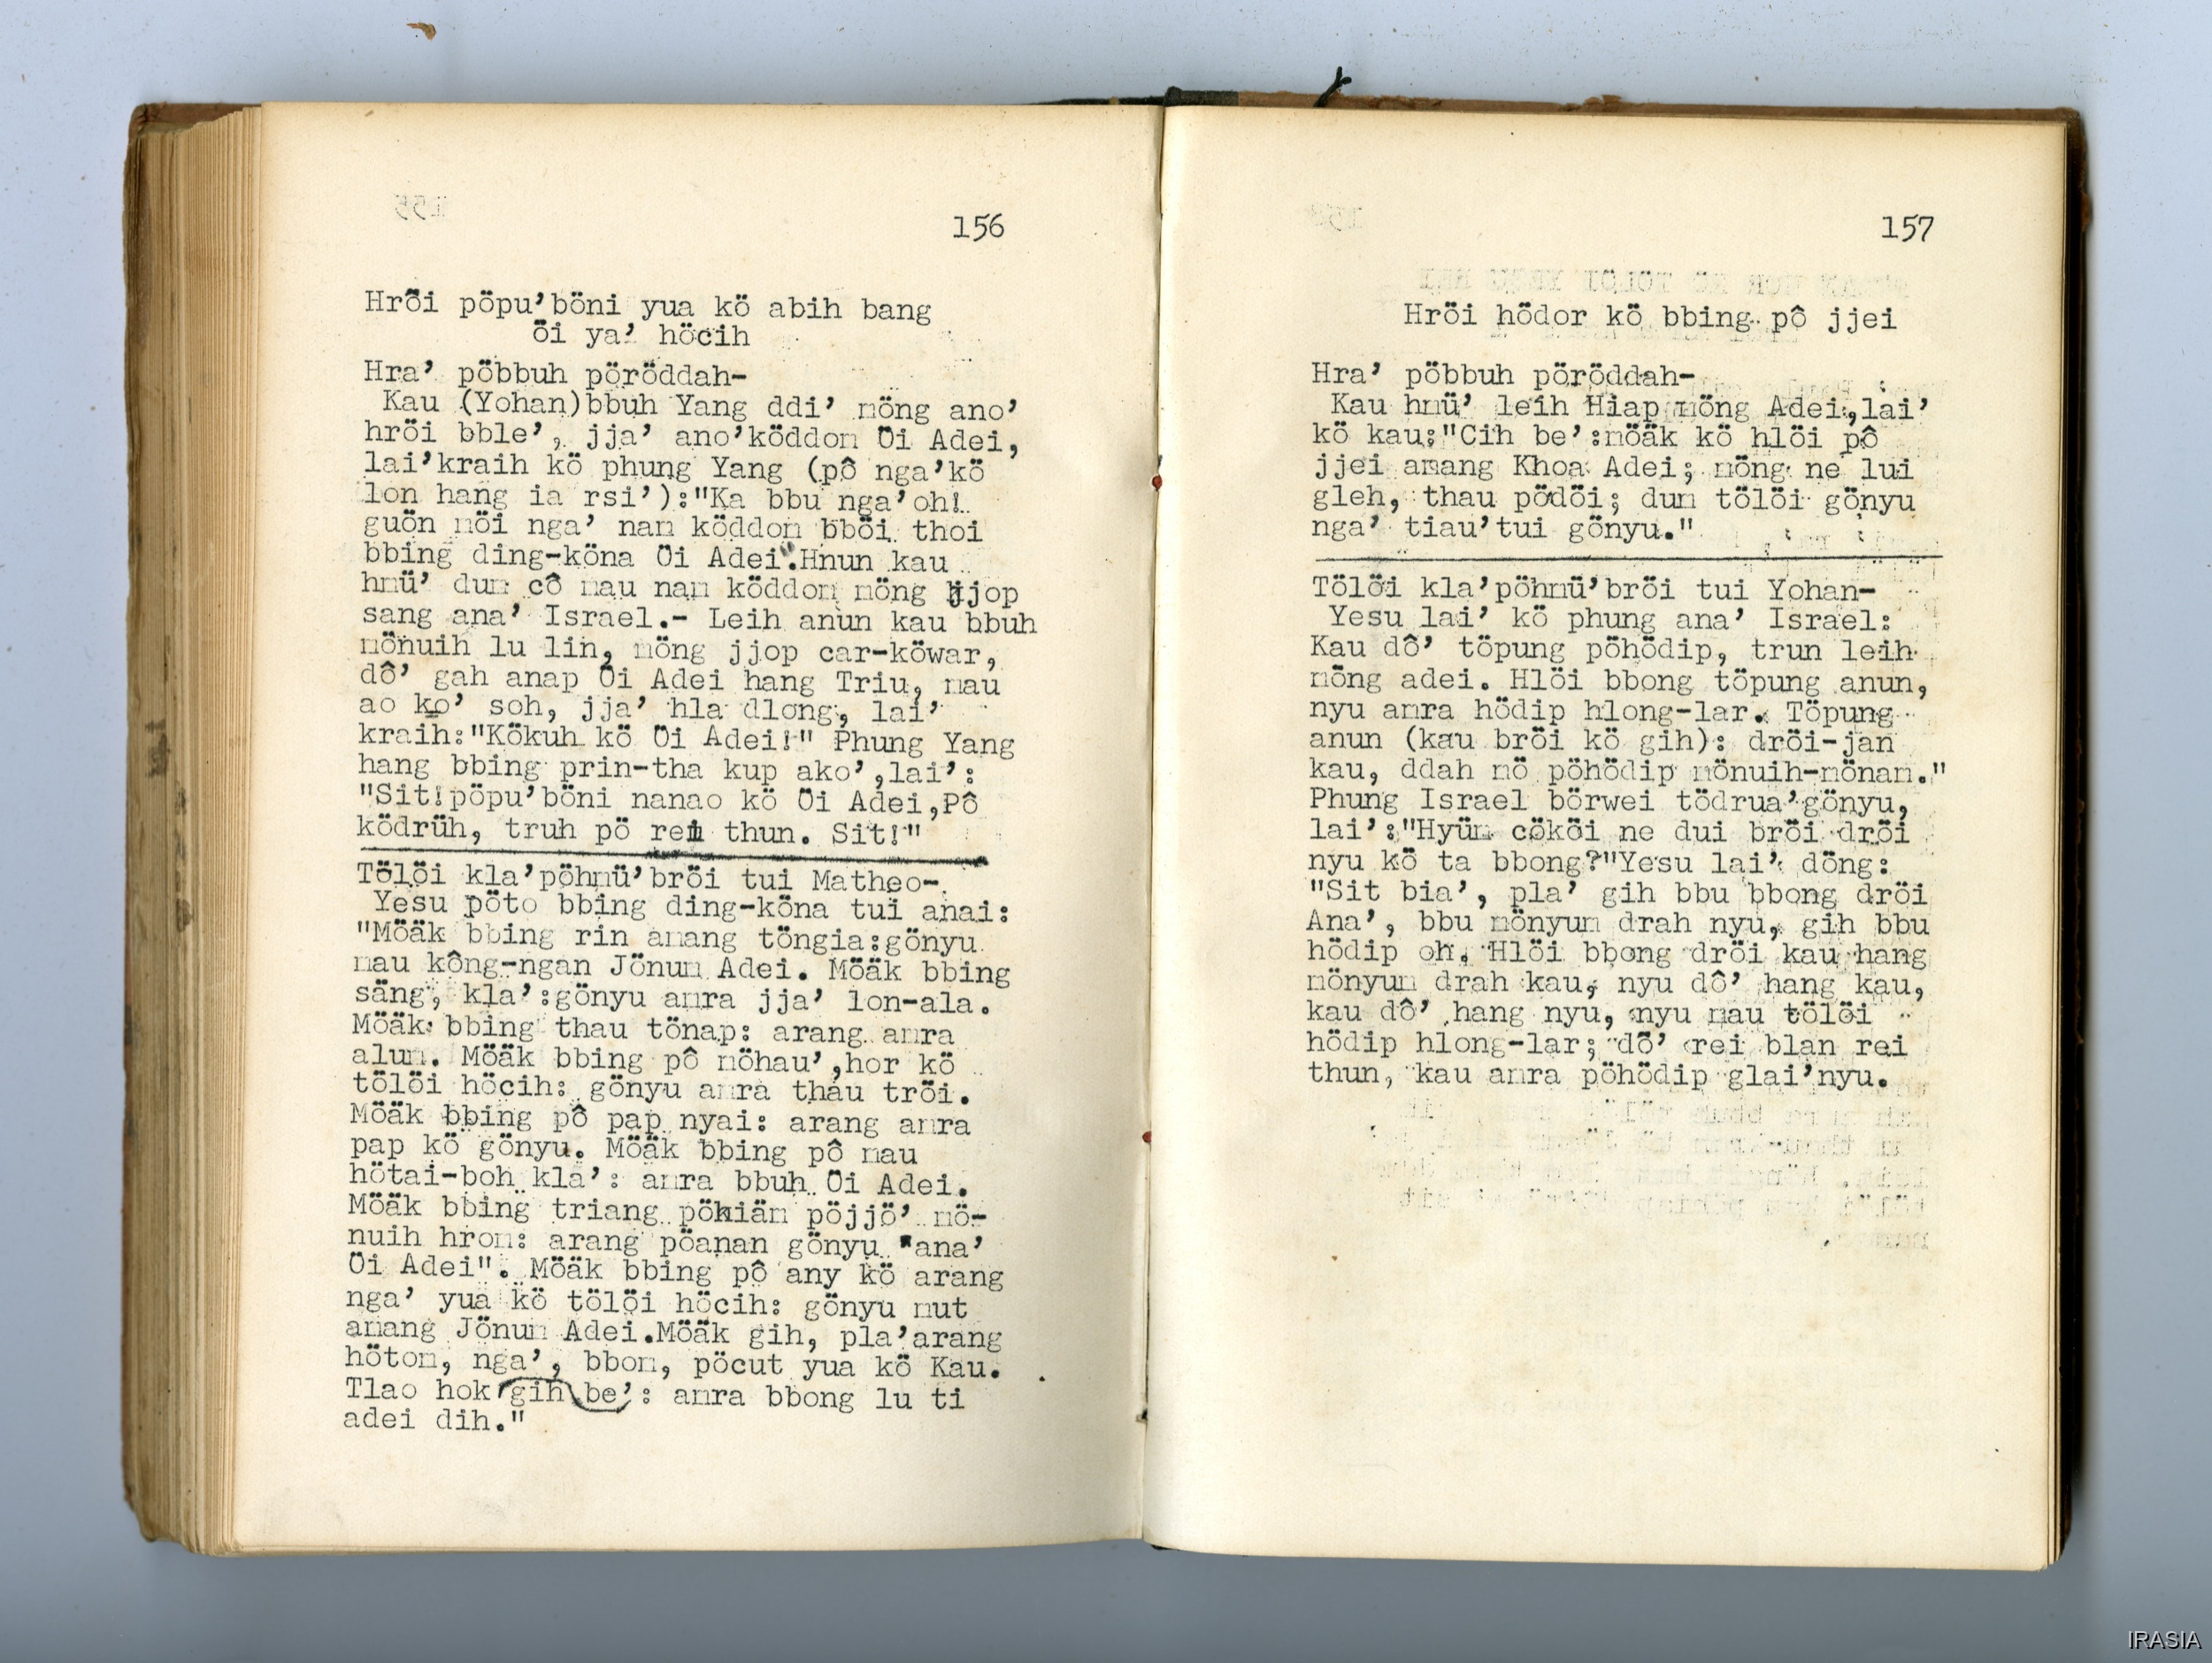 156
Hröi pöpu’böni yua kö abih bang
öi ya’ höcih
Hra’ pöbbuh pöröddah-
Kau (Yohan)bbuh Yang ddi’ möng ano’
hröi bble’, jja’ ano’köddom Öi Adei,
lai’kraih kö phung Yang (pô nga’kö
lon hang ia rsi’):"Ka bbu nga’oh!
guön möi nga’ nam köddom bböi thoi
bbing ding-köna Öi Adei".Hnun kau
hmü’ dum cô mau nam köddom möng jjop
sang ana’ Israel.- Leih anun kau bbuh
mönuih lu lin, möng jjop car-köwar,
dô’ gah anap Öi Adei hang Triu, mau
ao ko’ soh, jja’ hla dlong, lai’
kraih:"Kökuh kö Öi Adei!" Phung Yang
hang bbing prin-tha kup ako’,lai’:
"Sit!pöpu’böni nanao kö Öi Adei,Pô
ködrüh, truh pö rei thun. Sit!"
Tölöi kla’pöhmü’bröi tui Matheo-
Yesu pöto bbing ding-köna tui anai:
"Möäk bbing rin amang töngia:gönyu
mau kông-ngan Jönum Adei. Möäk bbing
säng, kla’:gönyu amra jja’ lon-ala.
Möäk bbing thau tönap: arang amra
alum. Möäk bbing pô möhau’,hor kö
tölöi höcih: gönyu amra thâu tröi.
Möäk bbing pô pap nyai: arang amra
pap kö gönyu. Möäk bbing pô mau
hötai-boh kla’: amra bbuh Öi Adei.
Möäk bbing triang pöhiäm pöjjö’ mö-
nuih hrom: arang pöanan gönyu "ana’
Öi Adei". Möäk bbing pô any kö arang
nga’ yua kö tölöi höcih: gönyu mut
amang Jönum Adei.Möäk gih, pla’arang
hötom, nga’, bbom, pöcut yua kö Kau.
Tlao hok gih be’: amra bbong lu ti
adei dih."
157
Hröi hödor kö bbing pô jjei
Hra’ pöbbuh pöröddah-
Kau hmü’ leih Hiap möng Adei,lai’
kö kau:"Cih be’:möäk kö hlöi pô
jjei amang Khoa Adei; möng ne lui
gleh, thau pödöi; dum tölöi gönyu
nga’ tiau’tui gönyu."
Tölöi kla’pöhmü’bröi tui Yohan-
Yesu lai’ kö phung ana’ Israel:
Kau dô’ töpung pöhödip, trun leih
möng adei. Hlöi bbong töpung anun,
nyu amra hödip hlong-lar. Töpung
anun (kau bröi kö gih): dröi-jan
kau, ddah mö pöhödip mönuih-mönam."
Phung Israel börwei tödrua’gönyu,
lai’:"Hyüm cököi ne dui bröi dröi
nyu kö ta bbong?"Yesu lai’ döng:
"Sit bia’, pla’ gih bbu bbong dröi
Ana’, bbu mönyum drah nyu, gih bbu
hödip oh. Hlöi bbong dröi kau hang
mönyum drah kau, nyu dô’ hang kau,
kau dô’ hang nyu, nyu mau tölöi
hödip hlong-lar; dô’ rei blan rei
thun, kau amra pöhödip glai’nyu.
IRASIA